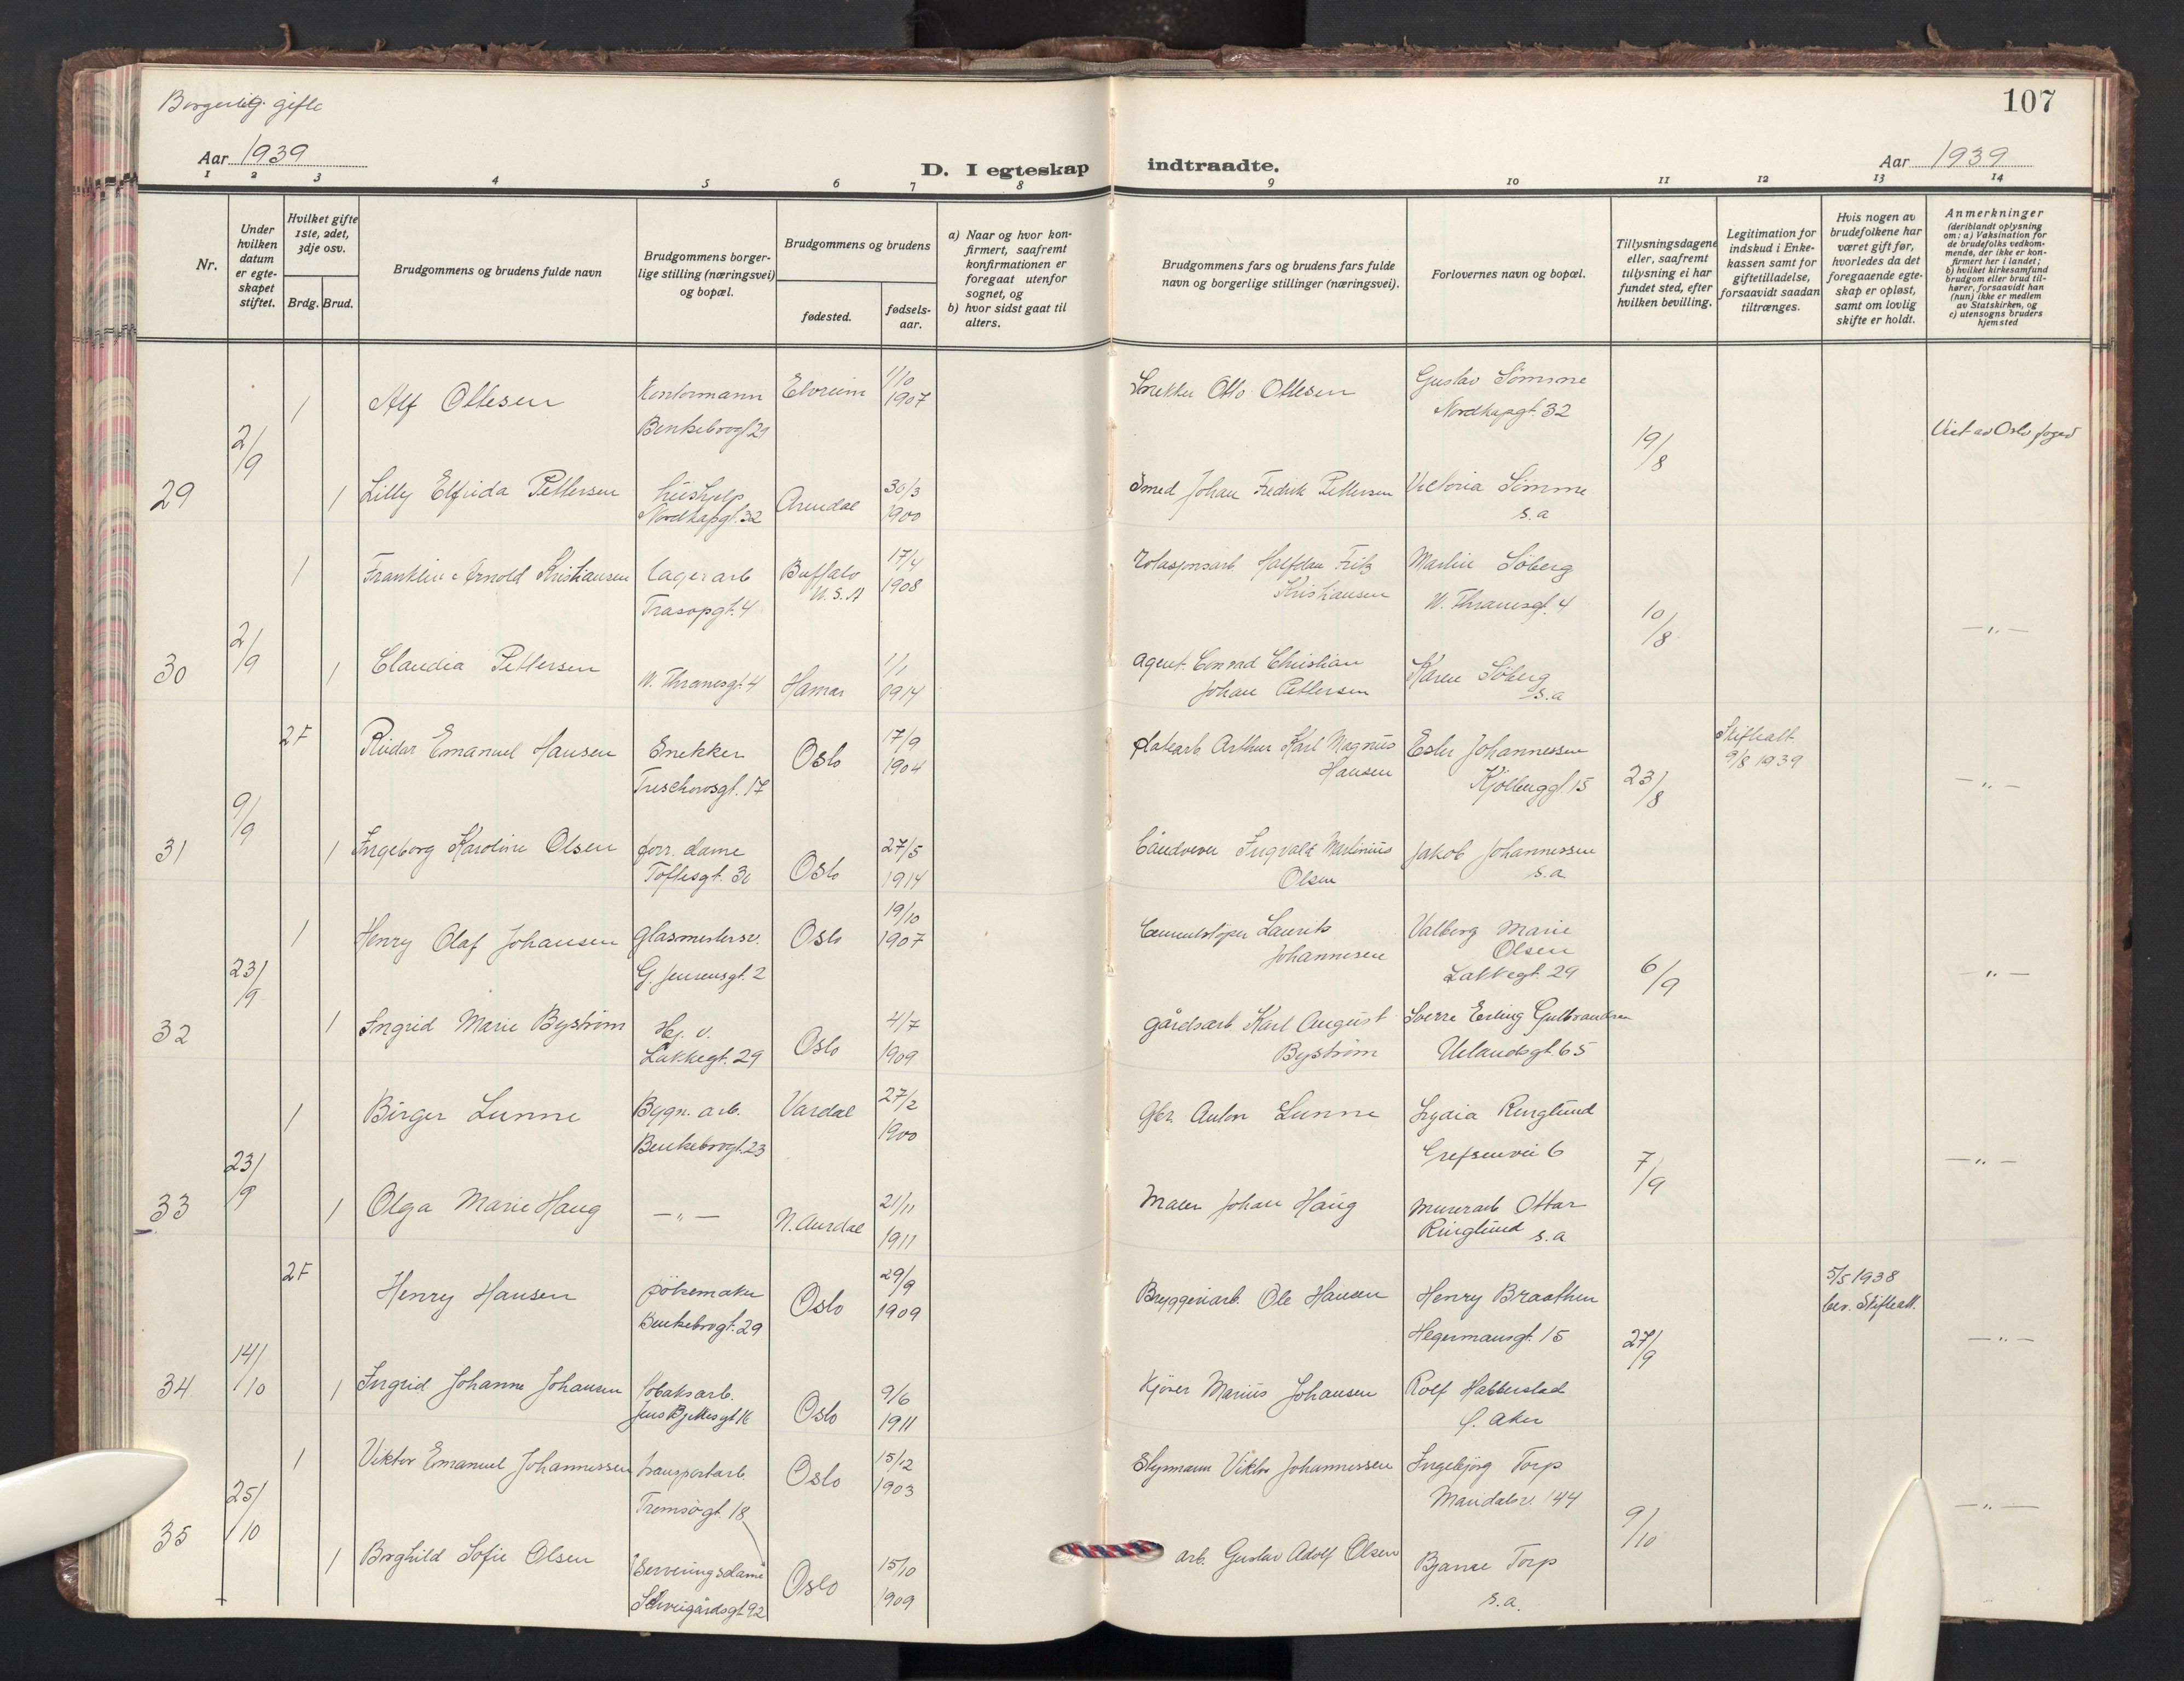 Borgerlig gifte
107
Aar 1939
D. I egteskap indtraadte.
Aar 1939
1 2 3 4 5 6 7 8 9 10 11 12 13 14
Nr.
Under hvilken datum er egteskapet stiftet.
Hvilket gifte 1ste, 2det, 3dje osv.
Brdg. Brud.
Brudgommens og brudens fulde navn
Brudgommens borgerlige stilling (næringsvei) og bopæl.
Brudgommens og brudens
fødested.
fødselsaar.
a) Naar og hvor konfirmert, saafremt konfirmationen er foregaat utenfor sognet, og
b) hvor sidst gaat til alters.
Brudgommens fars og brudens fars fulde navn og borgerlige stillinger (næringsvei).
Forlovernes navn og bopæl.
Tillysningsdagene eller, saafremt tillysning ei har fundet sted, efter hvilken bevilling.
Legitimation for indskud i Enkekassen samt for giftetilladelse, forsaavidt saadan tiltrænges.
Hvis nogen av brudefolkene har været gift før, hvorledes da det foregaaende egteskap er opløst, samt om lovlig skifte er holdt.
Anmerkninger (deriblandt oplysning om: a) Vaksination for de brudefolks vedkommende, der ikke er konfirmert her i landet; b) hvilket kirkesamfund brudgom eller brud tilhører, forsaavidt han (hun) ikke er medlem av Statskirken, og c) utensogns bruders hjemsted
29
2/9
1 Alf Ottesen Kontormann Elverum 1/10 1907
Benkebrogt 21
Snekker Otto Ottesen Gustav Sømme
Nordkapgt. 32
19/8
Viet av Oslo foged
1 Lilly Elfrida Pettersen hushjelp Arendal 30/3 1900
Nordkapgt. 32
Smed Johan Fredrik Pettersen Victoria Sømme
s.a
30
2/9
1 Franklin Arnold Kristiansen lagerarb Buffalo U.S.A 17/4 1908
Trasopgt. 4
Rotasjonsarb. Halfdan Fritz Kristiansen Martin Söberg
W. Thranesgt. 4
10/8
— " —
1 Claudia Pettersen W. Thranesgt. 4 Hamar 1/1 1914
agent. Conrad Christian Johan Pettersen Karen Söberg
s.a
31
9/9
2F Reidar Emanuel Hansen Snekker Oslo 17/9 1904
Treschowsgt. 17
Platearb Arthur Karl Magnus Hansen Ester Johannessen
Kjölberggt. 15
23/8
Skifteatt 9/8 1939
— " —
1 Ingeborg Karoline Olsen forr. dame Oslo 27/5 1914
Toftesgt. 30
Ingvald Martinius Olsen Jakob Johannessen
s.a
32
23/9
1 Henry Olaf Johansen glasmestersv. Oslo 19/10 1907
G. Jensensgt. 2
Cementstöper Laurits Johannesen Valborg Marie Olsen
Lakkegt. 29
6/9
— " —
1 Ingrid Marie Byström Hj. v. Oslo 4/7 1909
Lakkegt. 29
gårdsarb. Karl August Byström Sverre Erling Gulbrandsen
Uelandsgt. 65
33
23/9
1 Birger Lunne Bygn. arb. Vardal 27/2 1900
Benkebrogt. 23
Gbr. Anton Lunne Lydia Ringlund
Grefsenvei 6
7/9
— " —
1 Olga Marie Haug — " — N. Aurdal 21/11 1911
Maler Johan Haug Murerarb Ottar Ringlund s.a
34
14/10
2F Henry Hansen pölsemaker Oslo 29/9 1909
Benkebrogt. 29
Bryggeriarb. Ole Hansen Henry Braathen
Hegermansgt. 15
27/9
5/5 1938
bev. Skifteatt.
— " —
1 Ingrid Johanne Johansen Tobaksarb. Oslo 9/6 1911
Jens Bjelkesgt 16
Kjörer Marius Johansen Rolf Habberstad
Ö. Aker
35
25/10
1 Viktor Emanuel Johannessen transportarb. Oslo 15/12 1903
Tromsögt. 18
Styrmann Viktor Johannessen Ingebjörg Torp
Maridalsv. 144
9/10
— " —
1 Borghild Sofie Olsen Serveringsdame Oslo 15/10 1909
Schweigårdsgt 92
arb. Gustav Adolf Olsen Bjarne Torp
s.a.